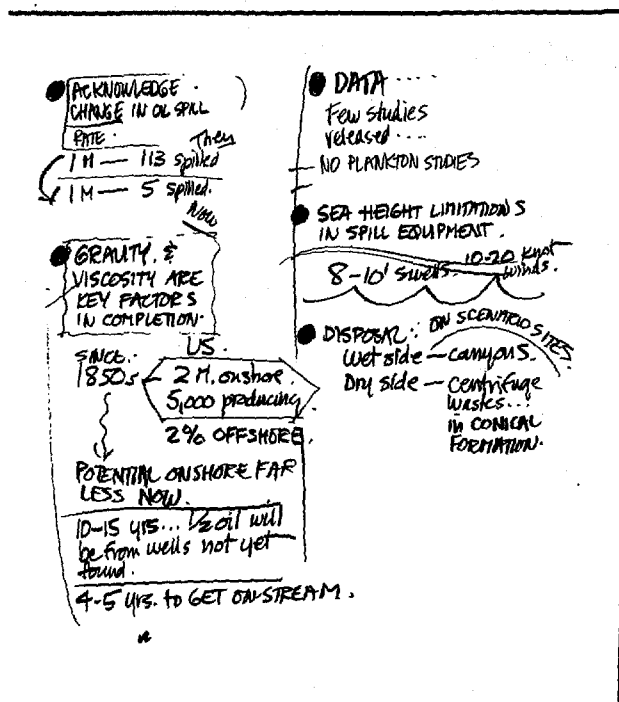 ACKNOWLEDGE.
CHANGE IN OIL SPILL
RATE.
Then
1 M — 113 spilled
1 M — 5 spilled.
Now
GRAVITY &
VISCOSITY ARE
KEY FACTORS
IN COMPLETION.
SINCE..
1850s
US.
2 M. onshore.
5,000 producing
2% OFFSHORE.
POTENTIAL ONSHORE FAR
LESS NOW.
10-15 yrs... 1/2 oil will
be from wells not yet
found.
4-5 yrs. to GET ON-STREAM.
DATA ....
Few studies
released ....
NO PLANKTON STUDIES
SEA HEIGHT LIMITATIONS
IN SPILL EQUIPMENT.
10-20 knot
winds.
8-10' swells.
DISPOSAL: ON SCENARIO SITES.
Wet side — canyons.
Dry side — Centrifuge
wastes...
in CONICAL
FORMATION.